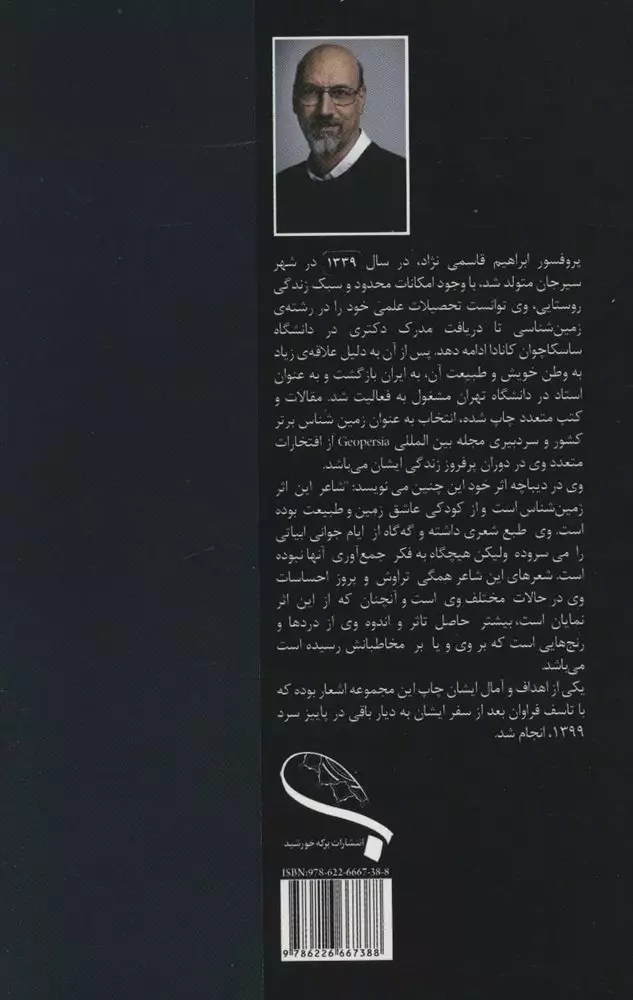 پروفسور ابراهیم قاسمی نژاد، در سال ۱۳۳۹ در شهر
سیرجان متولد شد، با وجود امکانات محدود و سبک زندگی
روستایی، وی توانست تحصیلات علمی خود را در رشته‌ی
زمین‌شناسی تا دریافت مدرک دکتری در دانشگاه
ساسکاچوان کانادا ادامه دهد. پس از آن به دلیل علاقه‌ی زیاد
به وطن خویش و طبیعت آن، به ایران بازگشت و به عنوان
استاد در دانشگاه تهران مشغول به فعالیت شد. مقالات و
کتب متعدد چاپ شده، انتخاب به عنوان زمین شناس برتر
کشور و سردبیری مجله بین المللی Geopersia از افتخارات
متعدد وی در دوران پرفروز زندگی ایشان می‌باشد.
وی در دیباچه اثر خود این چنین می نویسد: "شاعر این اثر
زمین‌شناس است و از کودکی عاشق زمین و طبیعت بوده
است. وی طبع شعری داشته و گه‌گاه از ایام جوانی ابیاتی
را می سروده ولیکن هیچگاه به فکر جمع‌آوری آنها نبوده
است. شعرهای این شاعر همگی تراوش و بروز احساسات
وی در حالات مختلف وی است و آنچنان که از این اثر
نمایان است، بیشتر حاصل تاثر و اندوه وی از دردها و
رنج‌هایی است که بر وی و یا بر مخاطبانش رسیده است
می‌باشد.
یکی از اهداف و آمال ایشان چاپ این مجموعه اشعار بوده که
با تاسف فراوان بعد از سفر ایشان به دیار باقی در پاییز سرد
۱۳۹۹، انجام شد.
انتشارات برکه خورشید
ISBN:978-622-6667-38-8
9 786226 667388